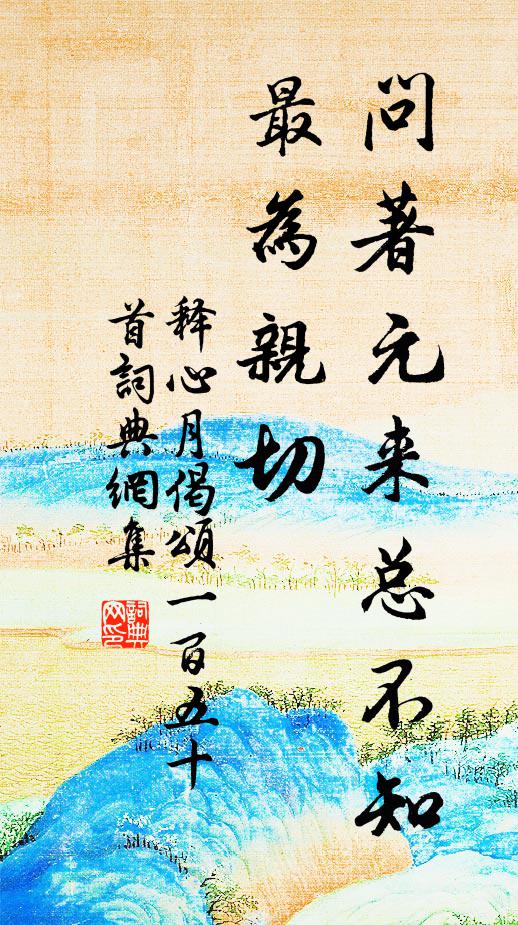 問著元来总不知
最為親切
释心月偈頌一百五十
首詞典網集
詞典
网印